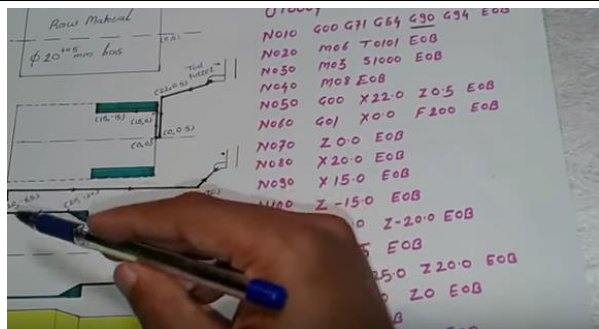 Raw Material
Φ 20 mm bas
Tool turret
(22,0.5)
(15,-15) (15,0)
(0,0.5)
(0,0)
N010 G00 G71 G64 G90 G94 EOB
N020 M06 T0101 EOB
N030 M03 S1000 EOB
N040 M08 EOB
N050 G00 X22.0 Z0.5 EOB
N060 G01 X0.0 F200 EOB
N070 Z0.0 EOB
N080 X20.0 EOB
N090 X15.0 EOB
N100 Z-15.0 EOB
Z-20.0 EOB
EOB
25.0 Z20.0 EOB
Z0 EOB